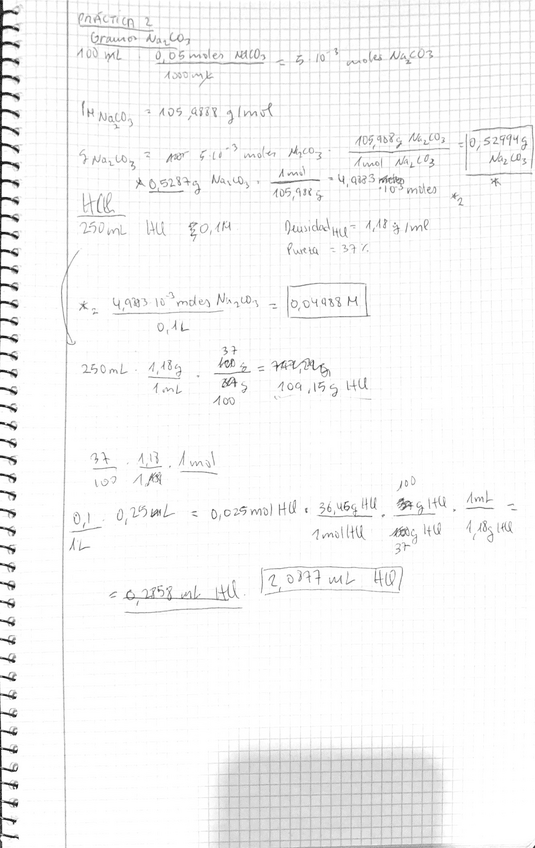 PRÁCTICA 2
Gramos Na₂CO₃
100 mL · 0,05 moles NaCO₃ / 1000 mL = 5·10⁻³ moles Na₂CO3
PM Na₂CO₃ = 105,9888 g/mol
g Na₂CO₃ = 5·10⁻³ moles Na₂CO₃ · 105,988g Na₂CO₃ / 1mol Na₂CO₃ = 0,52994g Na₂CO₃ *
* 0,5287g Na₂CO₃ · 1mol / 105,988g = 4,9883·10⁻³ moles *₂
HCl
250mL HCl 0,1M
Densidad HCl = 1,18 g/ml
Pureza = 37%
*₂ 4,9883·10⁻³ moles Na₂CO₃ / 0,1L = 0,04988 M
250mL · 1,18g / 1mL · 37 / 100 = 109,15g HCl
37 / 100 · 1,18 · 1mol
0,1 / 1L · 0,25L = 0,025mol HCl · 36,45g HCl / 1mol HCl · 100 g HCl / 37 g HCl · 1mL / 1,18g HCl =
= 0,2858 mL HCl 2,0877 mL HCl